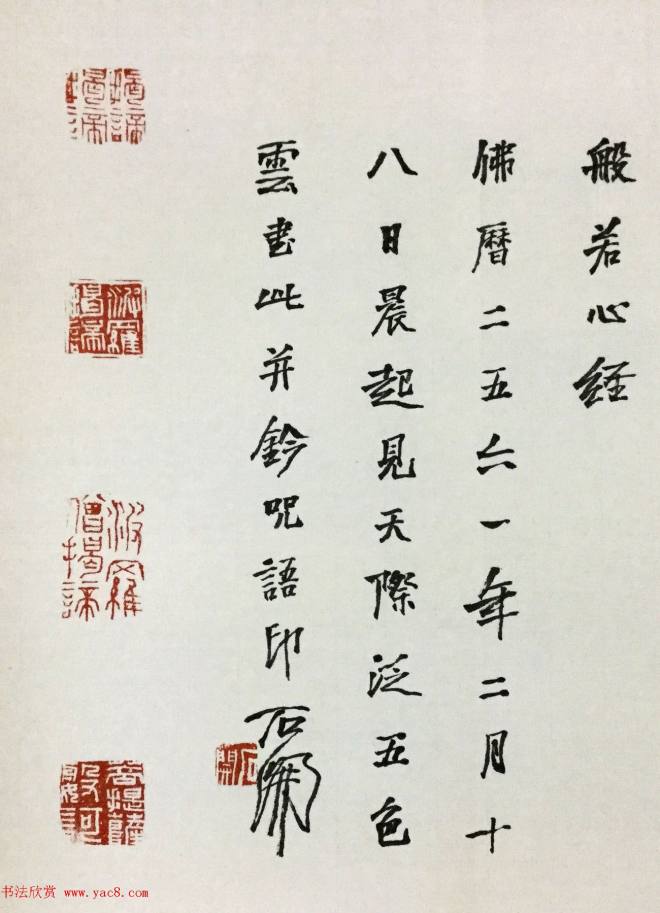 般若心経
佛曆二五六一年二月十
八日晨起見天際泛五色
雲書此并鈐呪語印 石開
石開
揭諦揭諦
波羅揭諦
波羅僧揭諦
菩提薩
书法欣赏 www.yac8.com